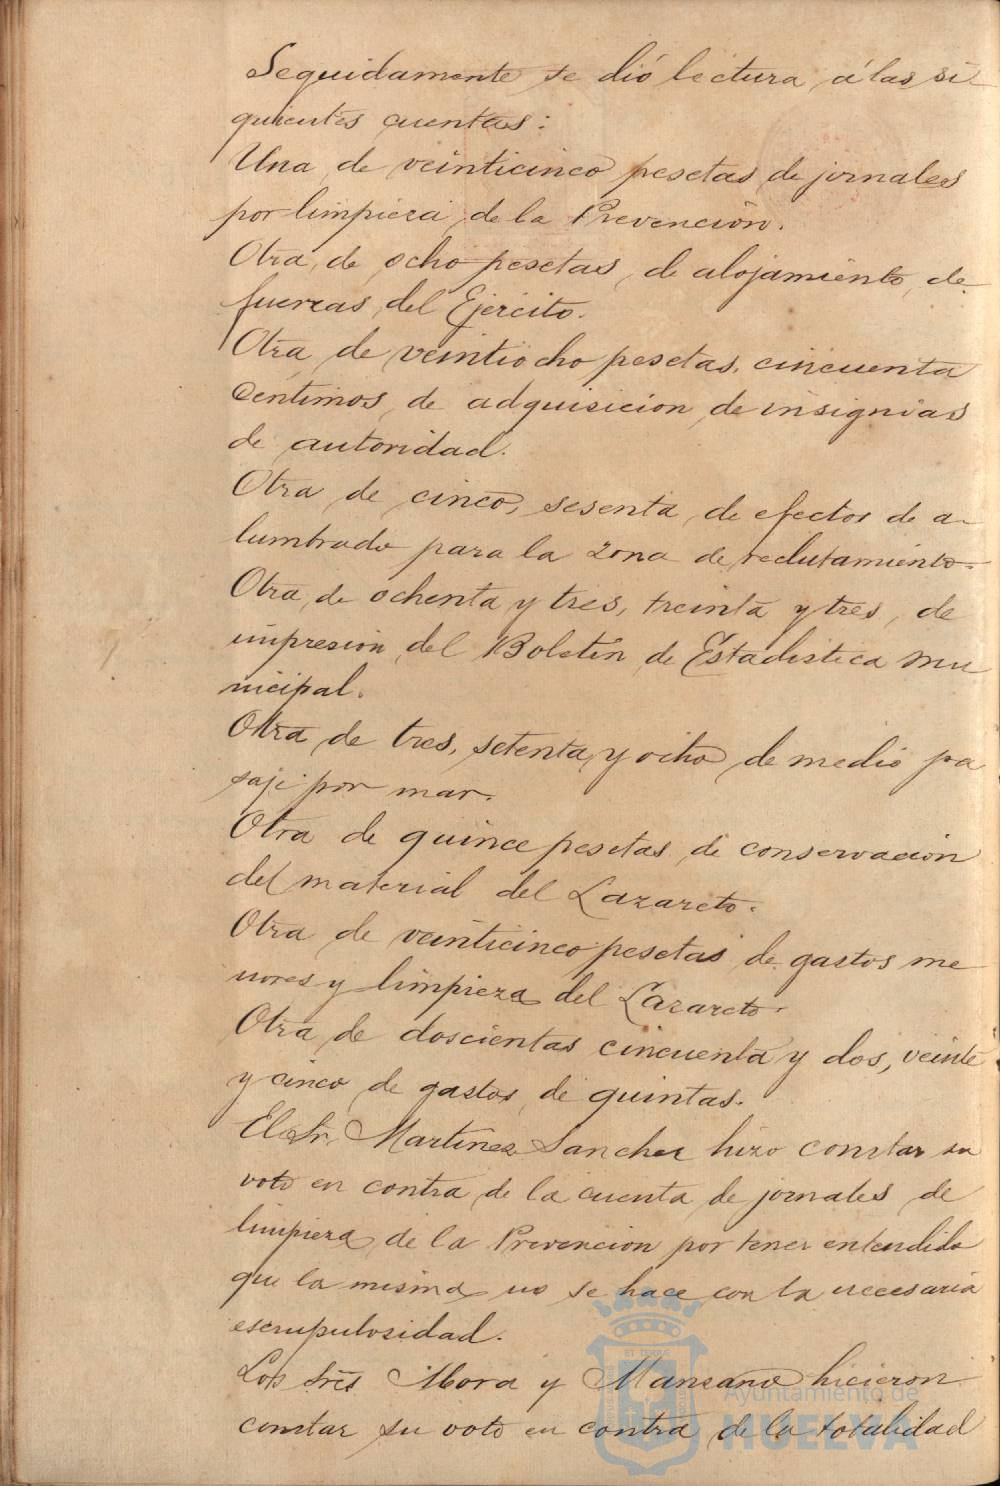 Seguidamente se dió lectura á las si
guientes cuentas:
Una de veinticinco pesetas de jornales
por limpieza de la Prevención.
Otra de ocho pesetas de alojamiento de
fuerzas del Ejército.
Otra de veintiocho pesetas, cincuenta
céntimos de adquisicion de insignias
de autoridad.
Otra de cinco, sesenta de efectos de a-
lumbrado para la zona de reclutamiento.
Otra de ochenta y tres, treinta y tres, de
impresion del Boletin de Estadistica mu
nicipal.
Otra de tres, setenta y ocho de medio pa
saje por mar.
Otra de quince pesetas de conservacion
del material del Lazareto.
Otra de veinticinco pesetas de gastos me
nores y limpieza del Lazareto.
Otra de doscientas cincuenta y dos, veinte
y cinco de gastos de quintas.
El Sr. Martinez Sanchez hizo constar su
voto en contra de la cuenta de jornales de
limpieza de la Prevencion por tener entendido
que la misma no se hace con la necesaria
escrupulosidad.
Los Sres Mora y Manzano hicieron
constar su voto en contra de la totalidad
Ayuntamiento de
HUELVA